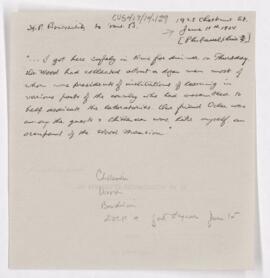 H.P. Bowditch to
1925 Chestnut St.
June 11th
[Philadelphia]
"... I got here safely in time for dinner on Thursday.
Dr. Wood had collected about a dozen men most of
whom were presidents of institutions of learning in
various parts of the country who had assembled to
help dedicate the laboratories. Our friend Osler was
among the guests & Chittenden was, like myself an
occupant of the Wood Mansion."
Chittenden
Wood
Bowditch
June 15